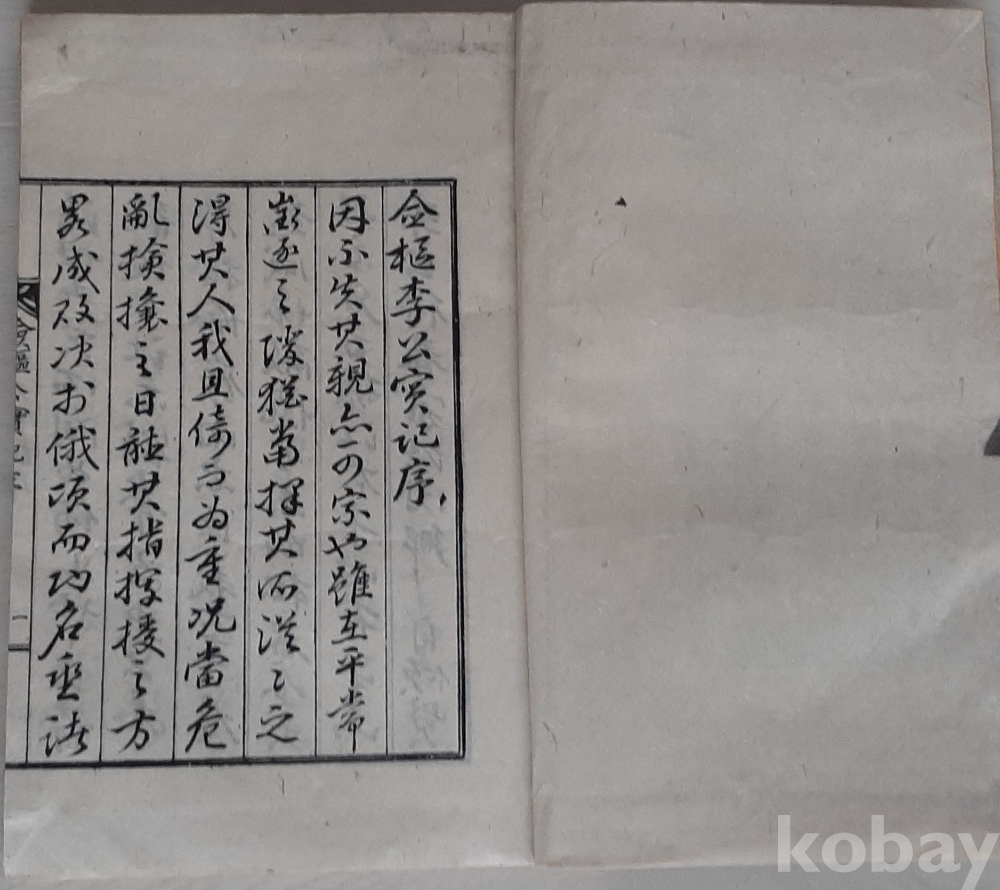 僉樞李公實記序
因不失其親亦可宗也雖在平常
遊之際猶當擇其所從之
得其人我且倚而为重况當危
亂搶攘之日能其指揮援之方
畧成敗决於俄頃而功名垂諸
僉樞公實記序
一
kobay